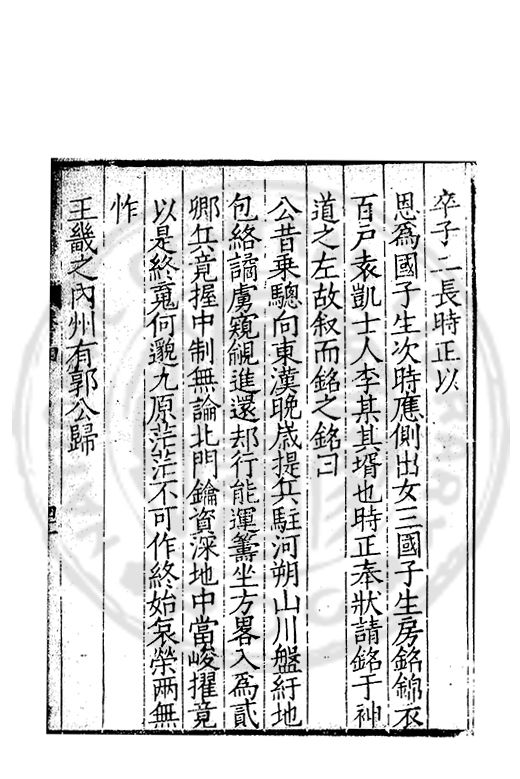 卒子二長時正以
恩爲國子生次時應側出女三國子生房銘錦衣
百戶袁凱士人李某其壻也時正奉狀請銘于神
道之左故叙而銘之銘曰
公昔乗驄向東漢晚歲提兵駐河朔山川盤紆地
包絡譎虜窺覦進還却行能運籌坐方畧入爲貳
卿兵竟握中制無論北門鑰資深地中當峻擢竟
以是終寃何邈九原茫茫不可作終始哀榮兩無
怍
王畿之內州有郭公歸